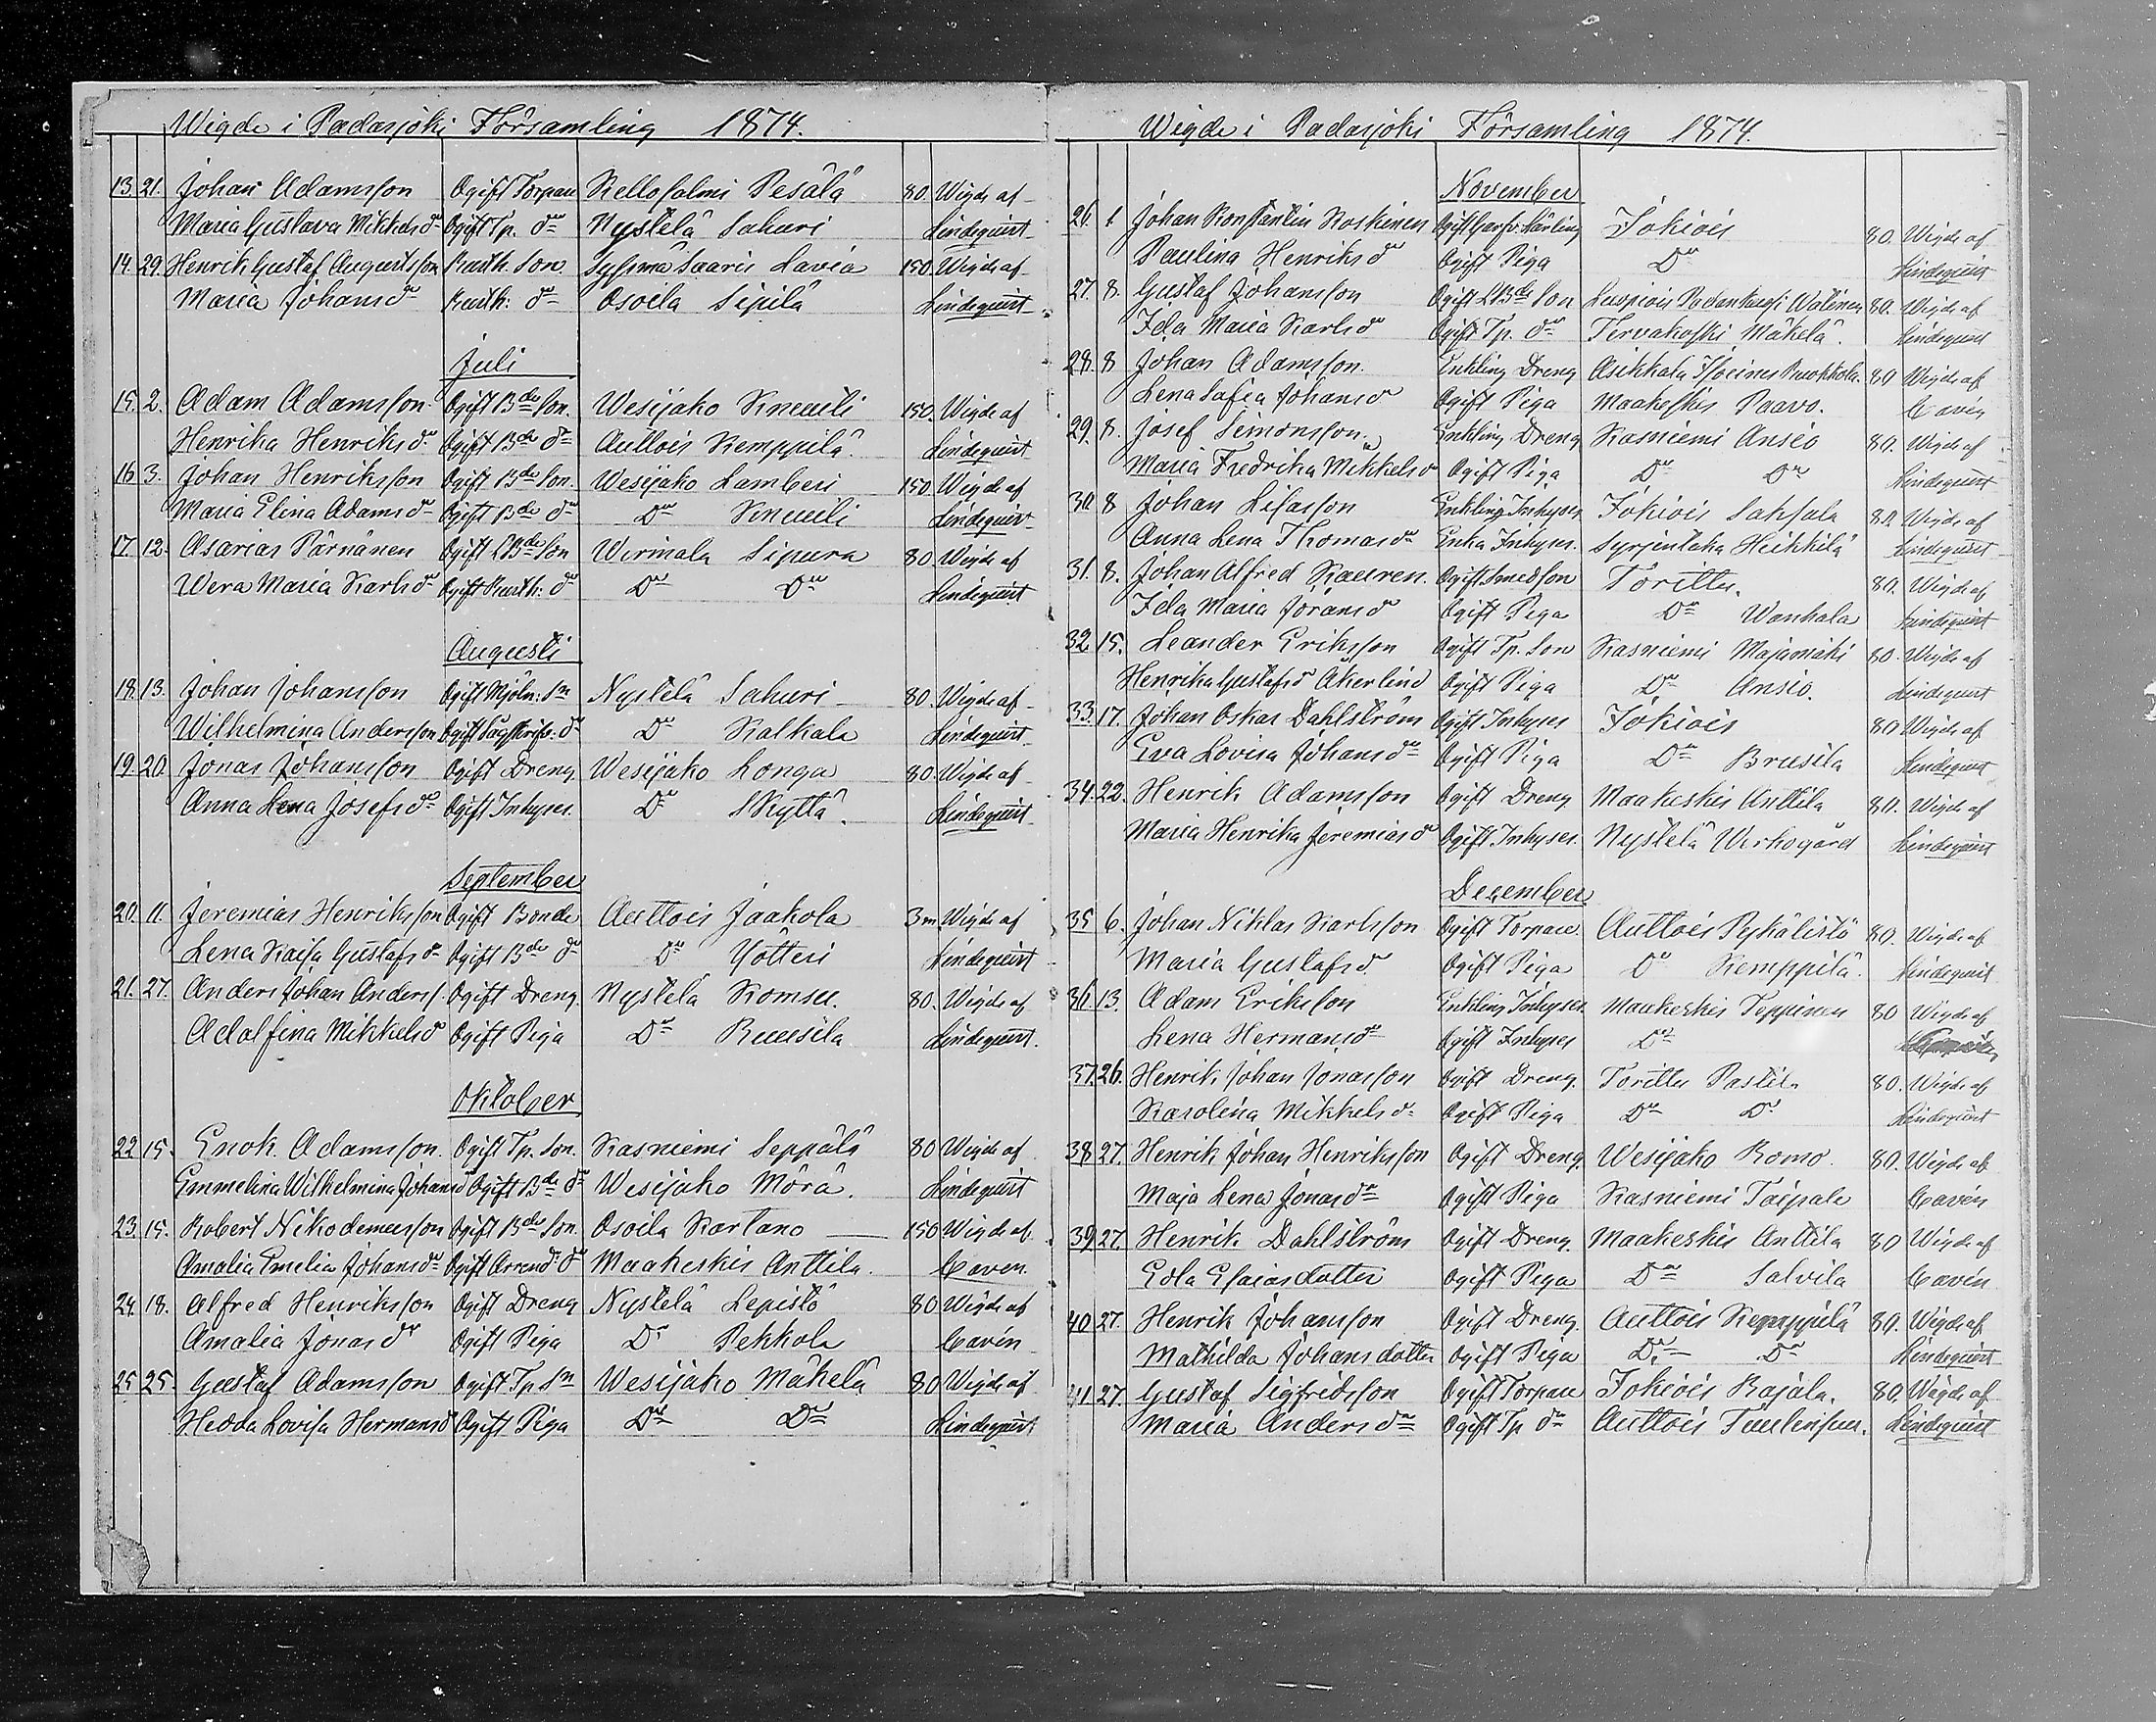 Wigde i Padasjöki Församling 1874.
13. 21. Johan Adamsson Ogift Torpare Kellosalmi Pesälä 80. Wigde af
Maria Gustava Mikkelsdr Ogift Tp. dr Nystelä Sahuri Lindequist
14. 29. Henrik Gustaf Augustsson Rusth. Son Sysmä Saaris Lavia 150. Wigde af
Maria Johansdr Rusth: dr Osoila Sipilä Lindequist
Juli
15. 2. Adam Adamsson Ogift Bde Son. Wesijako Knuuti 150. Wigde af
Henrika Henriksdr Ogift Bde dr Auttois Kemppilä Lindequist
16. 3. Johan Henriksson Ogift Bde Son. Wesijako Lamberi 150 Wigde af
Maria Elina Adamsdr Ogift Bde dr Do Knuuti Lindequist
17. 12. Asarias Pärnänen Ogift LBde Son Wirmala Sipura 80 Wigde af
Wera Maria Karlsdr Ogift Rusth: dr Do Do Lindequist
Augusti
18. 13. Johan Johansson Ogift Mjöln: Sn Nystelä Sahuri 80. Wigde af
Wilhelmina Andersson Ogift dr Do Kalkala Lindequist
19. 20. Jonas Johansson Ogift Dreng Wesijako Longa 80. Wigde af
Anna Lena Josefsdr Ogift Inhyses Do Skyttä. Lindequist
September
20. 11. Jeremias Henriksson Ogift Bonde Auttois Jaakola 3m Wigde af
Lena Kaisa Gustafsdr Ogift Bde dr Do Yötteri Lindequist
21. 27. Anders Johan Anderss. Ogift Dreng. Nystelä Komsu. 80. Wigde af
Adolfina Mikkelsdr Ogift Piga Do Ruusila Lindequist.
Oktober
22 15. Enok Adamsson. Ogift Tp. Son. Kasniemi Seppälä 80 Wigde af
Emmelina Wilhelmina Johansd Ogift Bde dr Wesijako Mörä. Lindequist
23. 15. Robert Nikodemusson Ogift Bde Son. Osoila Kartano 150 Wigde af
Amalia Emelia Johansdr Ogift Arrend: dr Maakeskis Anttila. Cavén.
24. 18. Alfred Henriksson Ogift Dreng Nystelä Lepistö 80 Wigde af
Amalia Jonasdr Ogift Piga Do Pekkola Cavén
25 25. Gustaf Adamsson Ogift Tp Sn Wesijako Mäkelä 80 Wigde af
Hedda Lovisa Hermansd Ogift Piga Do Do Lindequist
Wigde i Padasjöki Församling 1874.
November
26. 1 Johan Konstantin Koskinen Ogift Jokiois 80. Wigde af
Paulina Henriksd Ogift Piga Do Lindequist
27. 8. Gustaf Johansson Ogift LBde Son Luopiois Padankoski Walinen 80. Wigde af
Ida Maria Karlsdr Ogift Tp. dr Tervakoski Mäkelä. Lindequist
28. 8 Johan Adamsson. Enkling Dreng Asikkala Ruokkola. 80 Wigde af
Lena Sofia Johansd Ogift Piga Maakeskis Paavo. Cavén
29. 8. Josef Simonsson Enkling Dreng Kasniemi Ansio 80. Wigde af
Maria Fredrika Mikkelsdr Ogift Piga Do Do Lindequist
30. 8 Johan Lisasson Enkling Inhyses Jokiois Sahsala 80. Wigde af
Anna Lena Thomasdr Enka Inhyses. Syrjentaka Heikkilä Lindequist
31. 8. Johan Alfred Kauren. Ogift Smed Son Toritto. 80. Wigde af
Ida Maria Göransdr Ogift Piga Do Wanhala Lindequist
32. 15. Leander Eriksson Ogift Tp. Son Kasniemi Majamäki 80. Wigde af
Henrika Gustafsd Åkerlind Ogift Piga Do Ansio. Lindequist
33. 17. Johan Oskar Dahlström Ogift Inhyses Jokiois 80 Wigde af
Eva Lovisa Johansdr Ogift Piga Do Brusila Lindequist
34. 22. Henrik Adamsson Ogift Dreng Maakeskis Anttila 80. Wigde af
Maria Henrika Jeremiasdr Ogift Inhyses. Nystelä Wirkogård Lindequist
December
35 6. Johan Niklas Karlsson Ogift Torpare Auttois Pykälistö 80. Wigde af
Maria Gustafsd. Ogift Piga Do Kemppilä. Lindequist
36. 13. Adam Eriksson Enkling Inhyses. Maakeskis Teppinen 80 Wigde af
Lena Hermansdr Ogift Inhyses Do
37. 26. Henrik Johan Jonasson Ogift Dreng. Toritto Pastila 80. Wigde af
Karolina Mikkelsdr Ogift Piga Do Do Lindequist
38 27. Henrik Johan Henriksson Ogift Dreng. Wesijako Romo. 80. Wigde af
Maja Lena Jonasdr Ogift Piga Kasniemi Taipale Cavén
39 27. Henrik Dahlström Ogift Dreng. Maakeskis Anttila 80 Wigde af
Edla Esaiasdotter Ogift Piga Do Salvila Cavén
40 27. Henrik Johansson Ogift Dreng. Auttois Kemppilä 80. Wigde af
Mathilda Johansdotter Ogift Piga Do Do Lindequist
41. 27. Gustaf Sigfridsson Ogift Torpare Jokiois Rajala. 80. Wigde af
Maria Andersdr Ogift Tp dr Auttois Tuulensuu. Lindequist